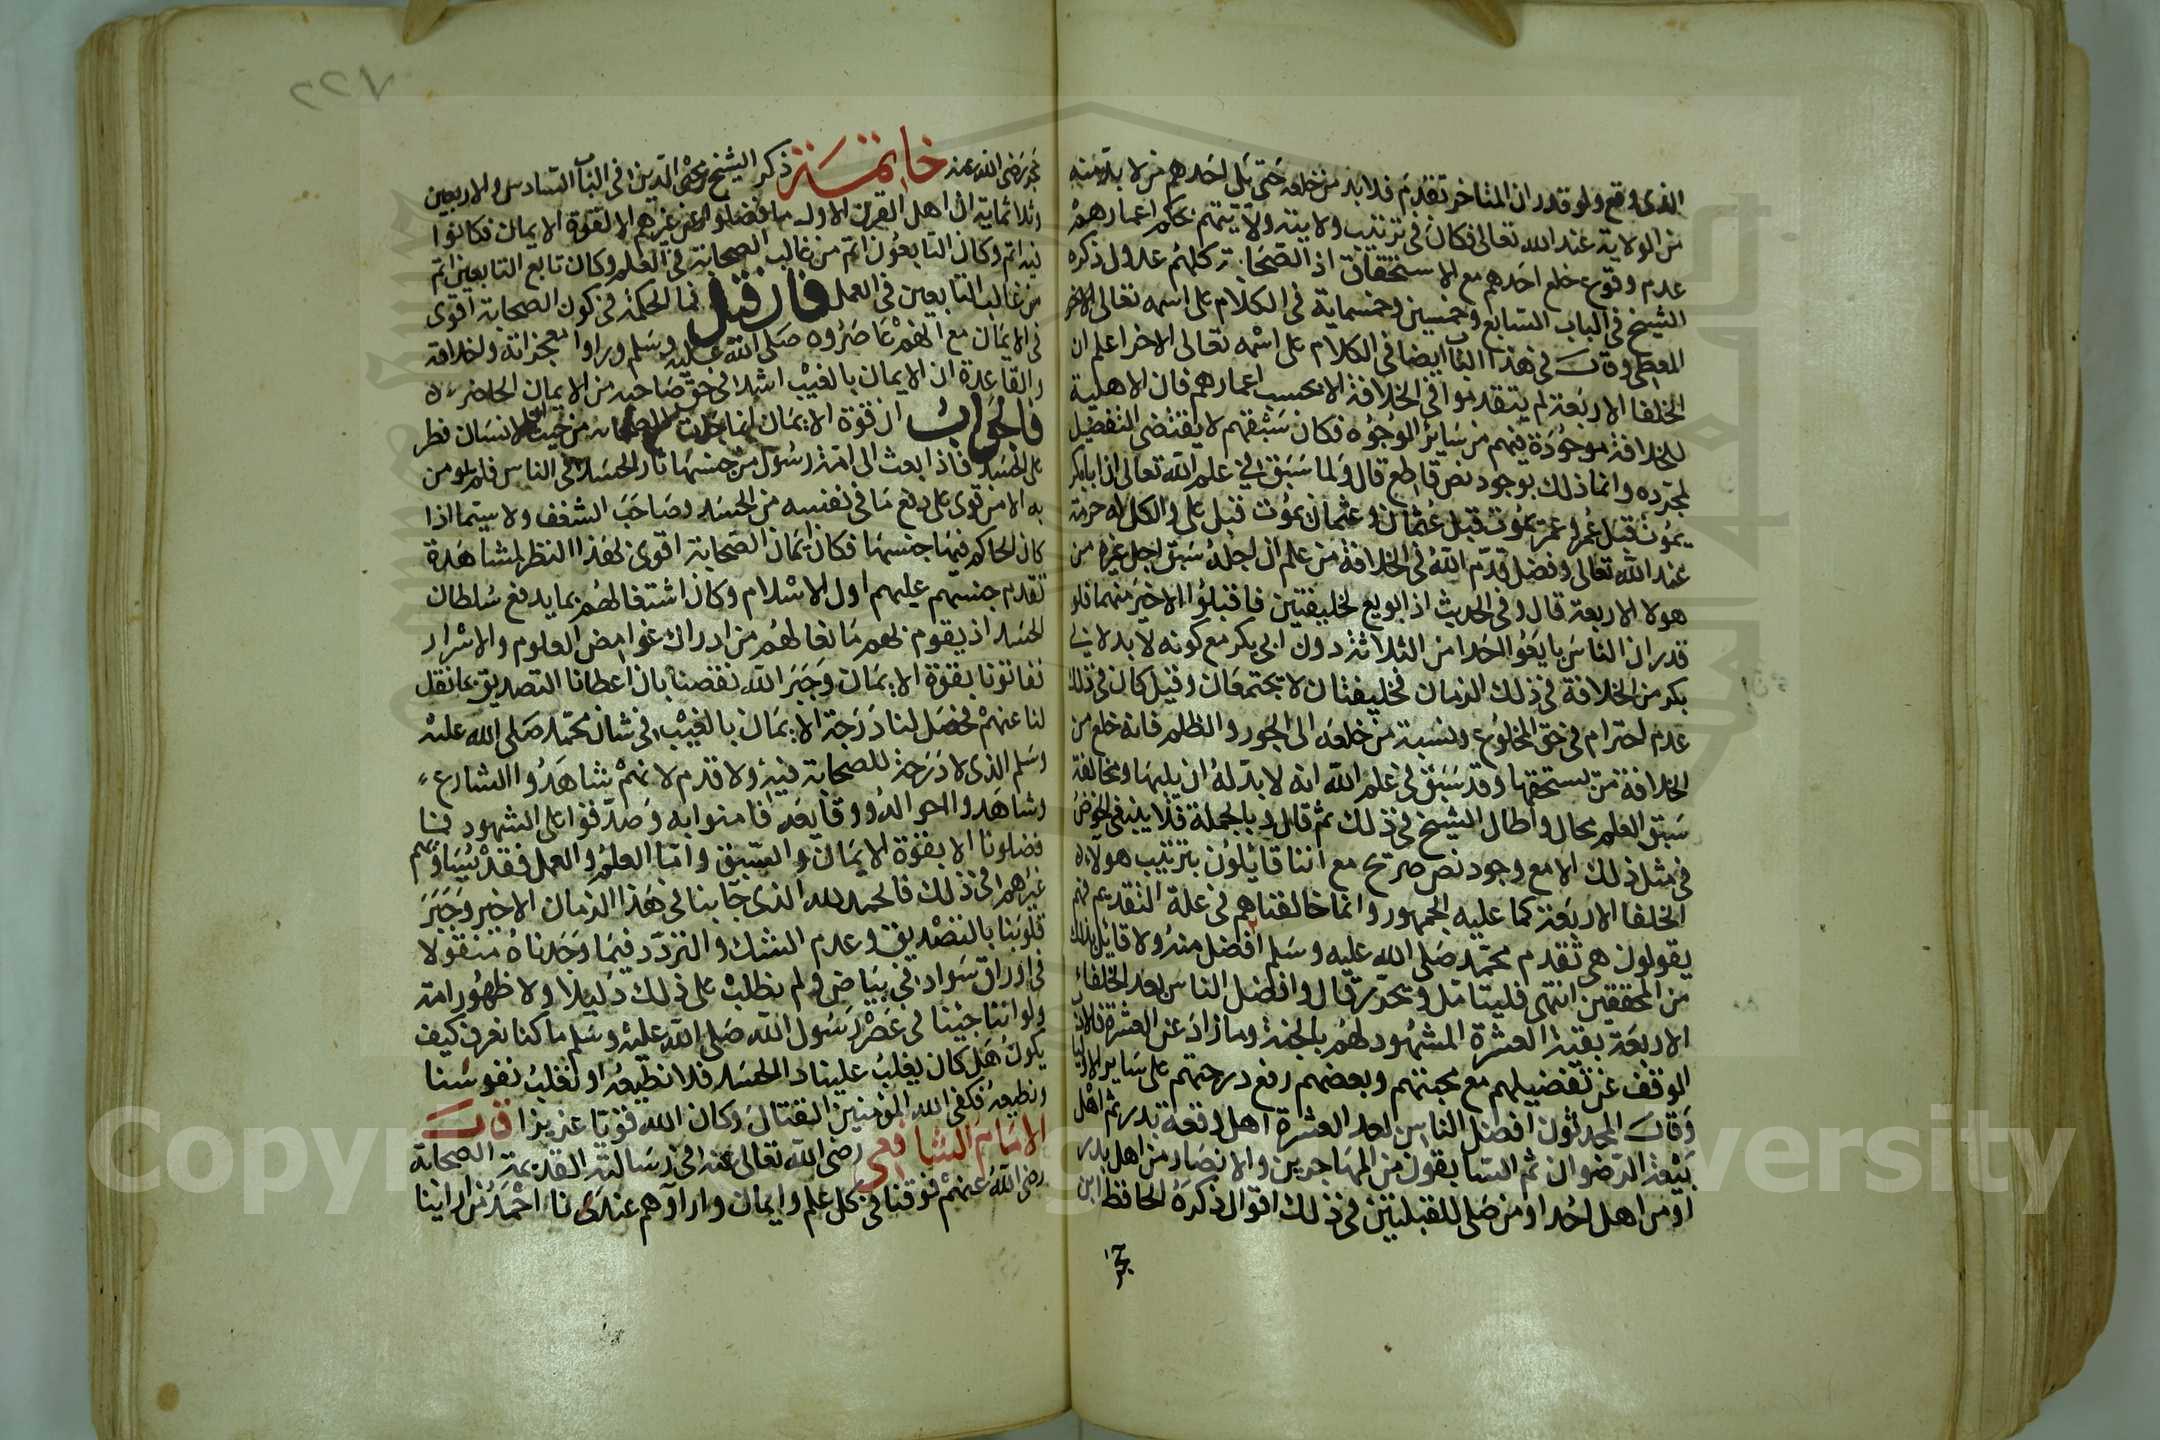 الذي وقع ولو قدر ان المتاخر تقدم فلا بد من خلعه حتى يلى احدهم من لا بد منه
من الولاية عند الله تعالى فكان في ترتيب ولايته ولايتهم بحكم اعمارهم
عدم وقوع خلع احدهم مع الاستحقاق اذ الصحابة كلهم عدول ذكره
الشيخ في الباب السابع وخمسين وخمسماية في الكلام على اسمه تعالى الاخر
المعطى وقال في هذا الباب ايضا في الكلام على اسمه تعالى الاخر اعلم ان
الخلفا الاربعة لم يتقدموا في الخلافة الا بحسب اعمارهم فان الاهلية
للخلافة موجودة فيهم من ساير الوجوه فكان سبقهم لا يقتضى التفضيل
لمجرده وانما ذلك بوجود نص قاطع قال ولما سبق في علم الله تعالى ان ابا بكر
يموت قبل عمر وعمر يموت قبل عثمان وعثمان يموت قبل على والكل له حرمة
عند الله تعالى وفضل قدم الله في الخلافة من علم ان اجله سبق اجل غيره من
هولا الاربعة قال وفي الحديث اذا بويع لخليفتين فاقتلوا الاخير منهما فلو
قدر ان الناس بايعوا احدا من الثلاثة دون ابي بكر مع كونه لا بد لابي
بكر من الخلافة في ذلك الزمان فخليفتان لا يجتمعان وقيل كان في ذلك
عدم احترام في حق المخلوع ونسبة من خلعه الى الجور والظلم فانه خلع من
الخلافة من يستحقها وقد سبق في علم الله انه لا بد له ان يليها ومخالفة
سبق العلم محال واطال الشيخ في ذلك ثم قال وبالجملة فلا ينبغى الخوض
في مثل ذلك الا مع وجود نص صريح مع اننا قايلون بترتيب هولاء
الخلفا الاربعة كما عليه الجمهور وانما خالفناهم في علة التقديم فهم
يقولون هى تقدم محمد صلى الله عليه وسلم افضل منه ولا قايل بذلك
من المحققين انتهى فليتامل وتحرر قال وافضل الناس بعد الخلفاء
الاربعة بقية العشرة المشهود لهم بالجنة وما زاد عن العشرة فالاولى
الوقف عن تفضيلهم مع محبتهم وبعضهم رفع درجتهم على ساير الاوليا
وقال المحدثون افضل الناس بعد العشرة اهل وقعة بدر ثم اهل
بيعة الرضوان ثم السابقون من المهاجرين والانصار من اهل بدر
او من اهل احد او من صلى للقبلتين في ذلك اقوال ذكره الحافظ ابن
حجر
حجر رضى الله عنه خاتمة ذكر الشيخ محى الدين في الباب السادس والاربعين
وثلاثماية ان اهل القرن الاول ما فضلوا من غيرهم الا لقوة الايمان فكانوا
فيه اتم وكان التابعون اتم من غالب الصحابة في العلم وكان تابع التابعين اتم
من غالب التابعين في العمل فان قيل فما الحكمة في كون الصحابة اقوى
في الايمان مع انهم عاصروه صلى الله عليه وسلم وراوا معجزاته واخلاقه
والقاعدة ان الايمان بالغيب اشد في حق صاحبه من الايمان الحاضر
فالجواب ان قوة الايمان انما جات من حيث ان الانسان فطر
على الحسد فاذا بعث الى امة رسول من جنسها ثار الحسد في الناس فلم يومن
به الا من قوى على دفع ما في نفسه من الحسد وصاحب الشغف ولا سيما اذا
كان الحاكم فيها جنسها فكان ايمان الصحابة اقوى بهذا النظر لمشاهدة
تقدم جنسهم عليهم اول الاسلام وكان اشتغالهم بما يدفع سلطان
الحسد اذ يقوم بهم مانعا لهم من ادراك غوامض العلوم والاسرار
ففاتونا بقوة الايمان وجبر الله نقصنا بان اعطانا التصديق بما نقل
لنا عنهم فحصل لنا درجة الايمان بالغيب في شان محمد صلى الله عليه
وسلم الذى لا درجة للصحابة فيه ولا قدم لانهم شاهدوا الشارع
وشاهدوا احواله ووقايعه فامنوا به وصدقوا على الشهود فما
فضلونا الا بقوة الايمان والسبق واما العلم والعمل فقد يساويهم
غيرهم في ذلك فالحمد لله الذى جا بنا في هذا الزمان الاخير وجبر
قلوبنا بالتصديق وعدم الشك والتردد فيما وجدناه منقولا
في اوراق سواد في بياض ولم نطلب على ذلك دليلا ولا ظهور امة
ولو اننا جينا في عصر رسول الله صلى الله عليه وسلم ما كنا نعرف كيف
يكون هل كان يغلب علينا دا الحسد فلا نطيعه او نغلب نفوسنا
ونطيعه فكفى الله المؤمنين القتال وكان الله قويا عزيزا قال
الامام الشافعى رضى الله تعالى عنه في رسالته القديمة الصحابة
رضى الله عنهم فوقنا في كل علم وايمان واراوهم عندى لنا احمد من راينا